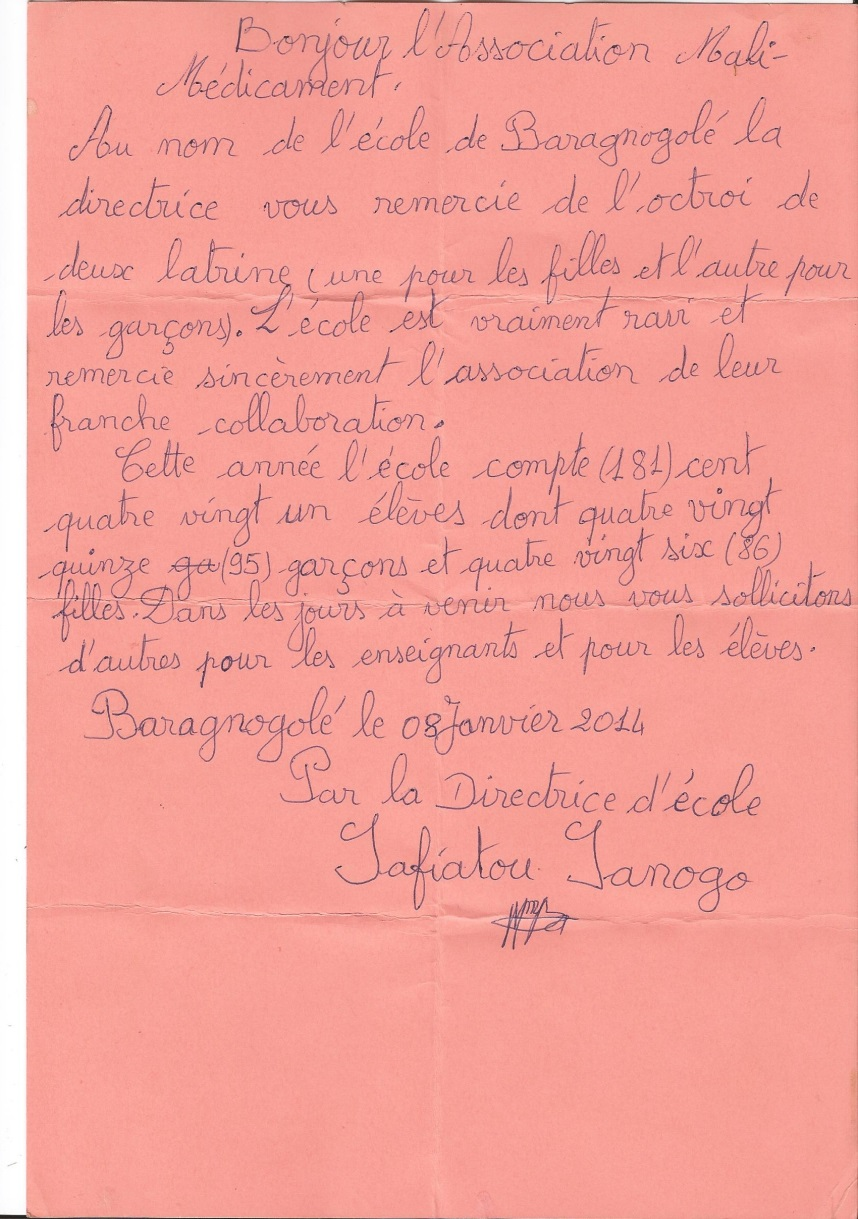 Bonjour l'Association Mali-
Médicament.
Au nom de l'école de Baragnogolé la
directrice vous remercie de l'octroi de
deux latrine (une pour les filles et l'autre pour
les garçons). L'école est vraiment ravi et
remercie sincèrement l'association de leur
franche collaboration.
Cette année l'école compte (181) cent
quatre vingt un élèves dont quatre vingt
quinze ga (95) garçons et quatre vingt six (86)
filles. Dans les jours à venir nous vous sollicitons
d'autres pour les enseignants et pour les élèves.
Baragnogolé le 08 Janvier 2014
Par la Directrice d'école
Safiatou Sanogo